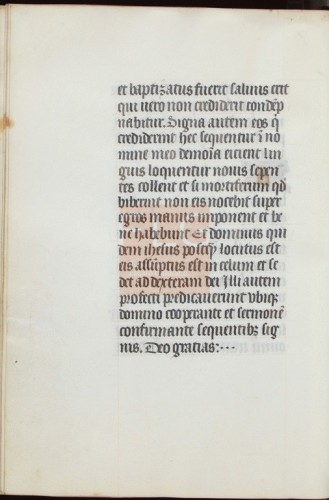 et baptizatus fuerit salvus erit
qui uero non crediderit condēp
nabitur. Signa autem eos q̄
crediderint hec sequentur ī no
mine meo demoīa eicient lin
guis loquentur nouis serpen
tes tollent et si mortiferum qd̄
biberint non eis nocebit super
egros manus imponent et be
ne habebunt Et dominus qui
dem ihesus postq̄ locutus est
eis assūptus est in celum et se
det ad dexteram dei Illi autem
profecti predicauerunt vbiqꝫ
domino cooperante et sermonē
confirmante sequentibꝫ sig
nis. Deo gratias:···